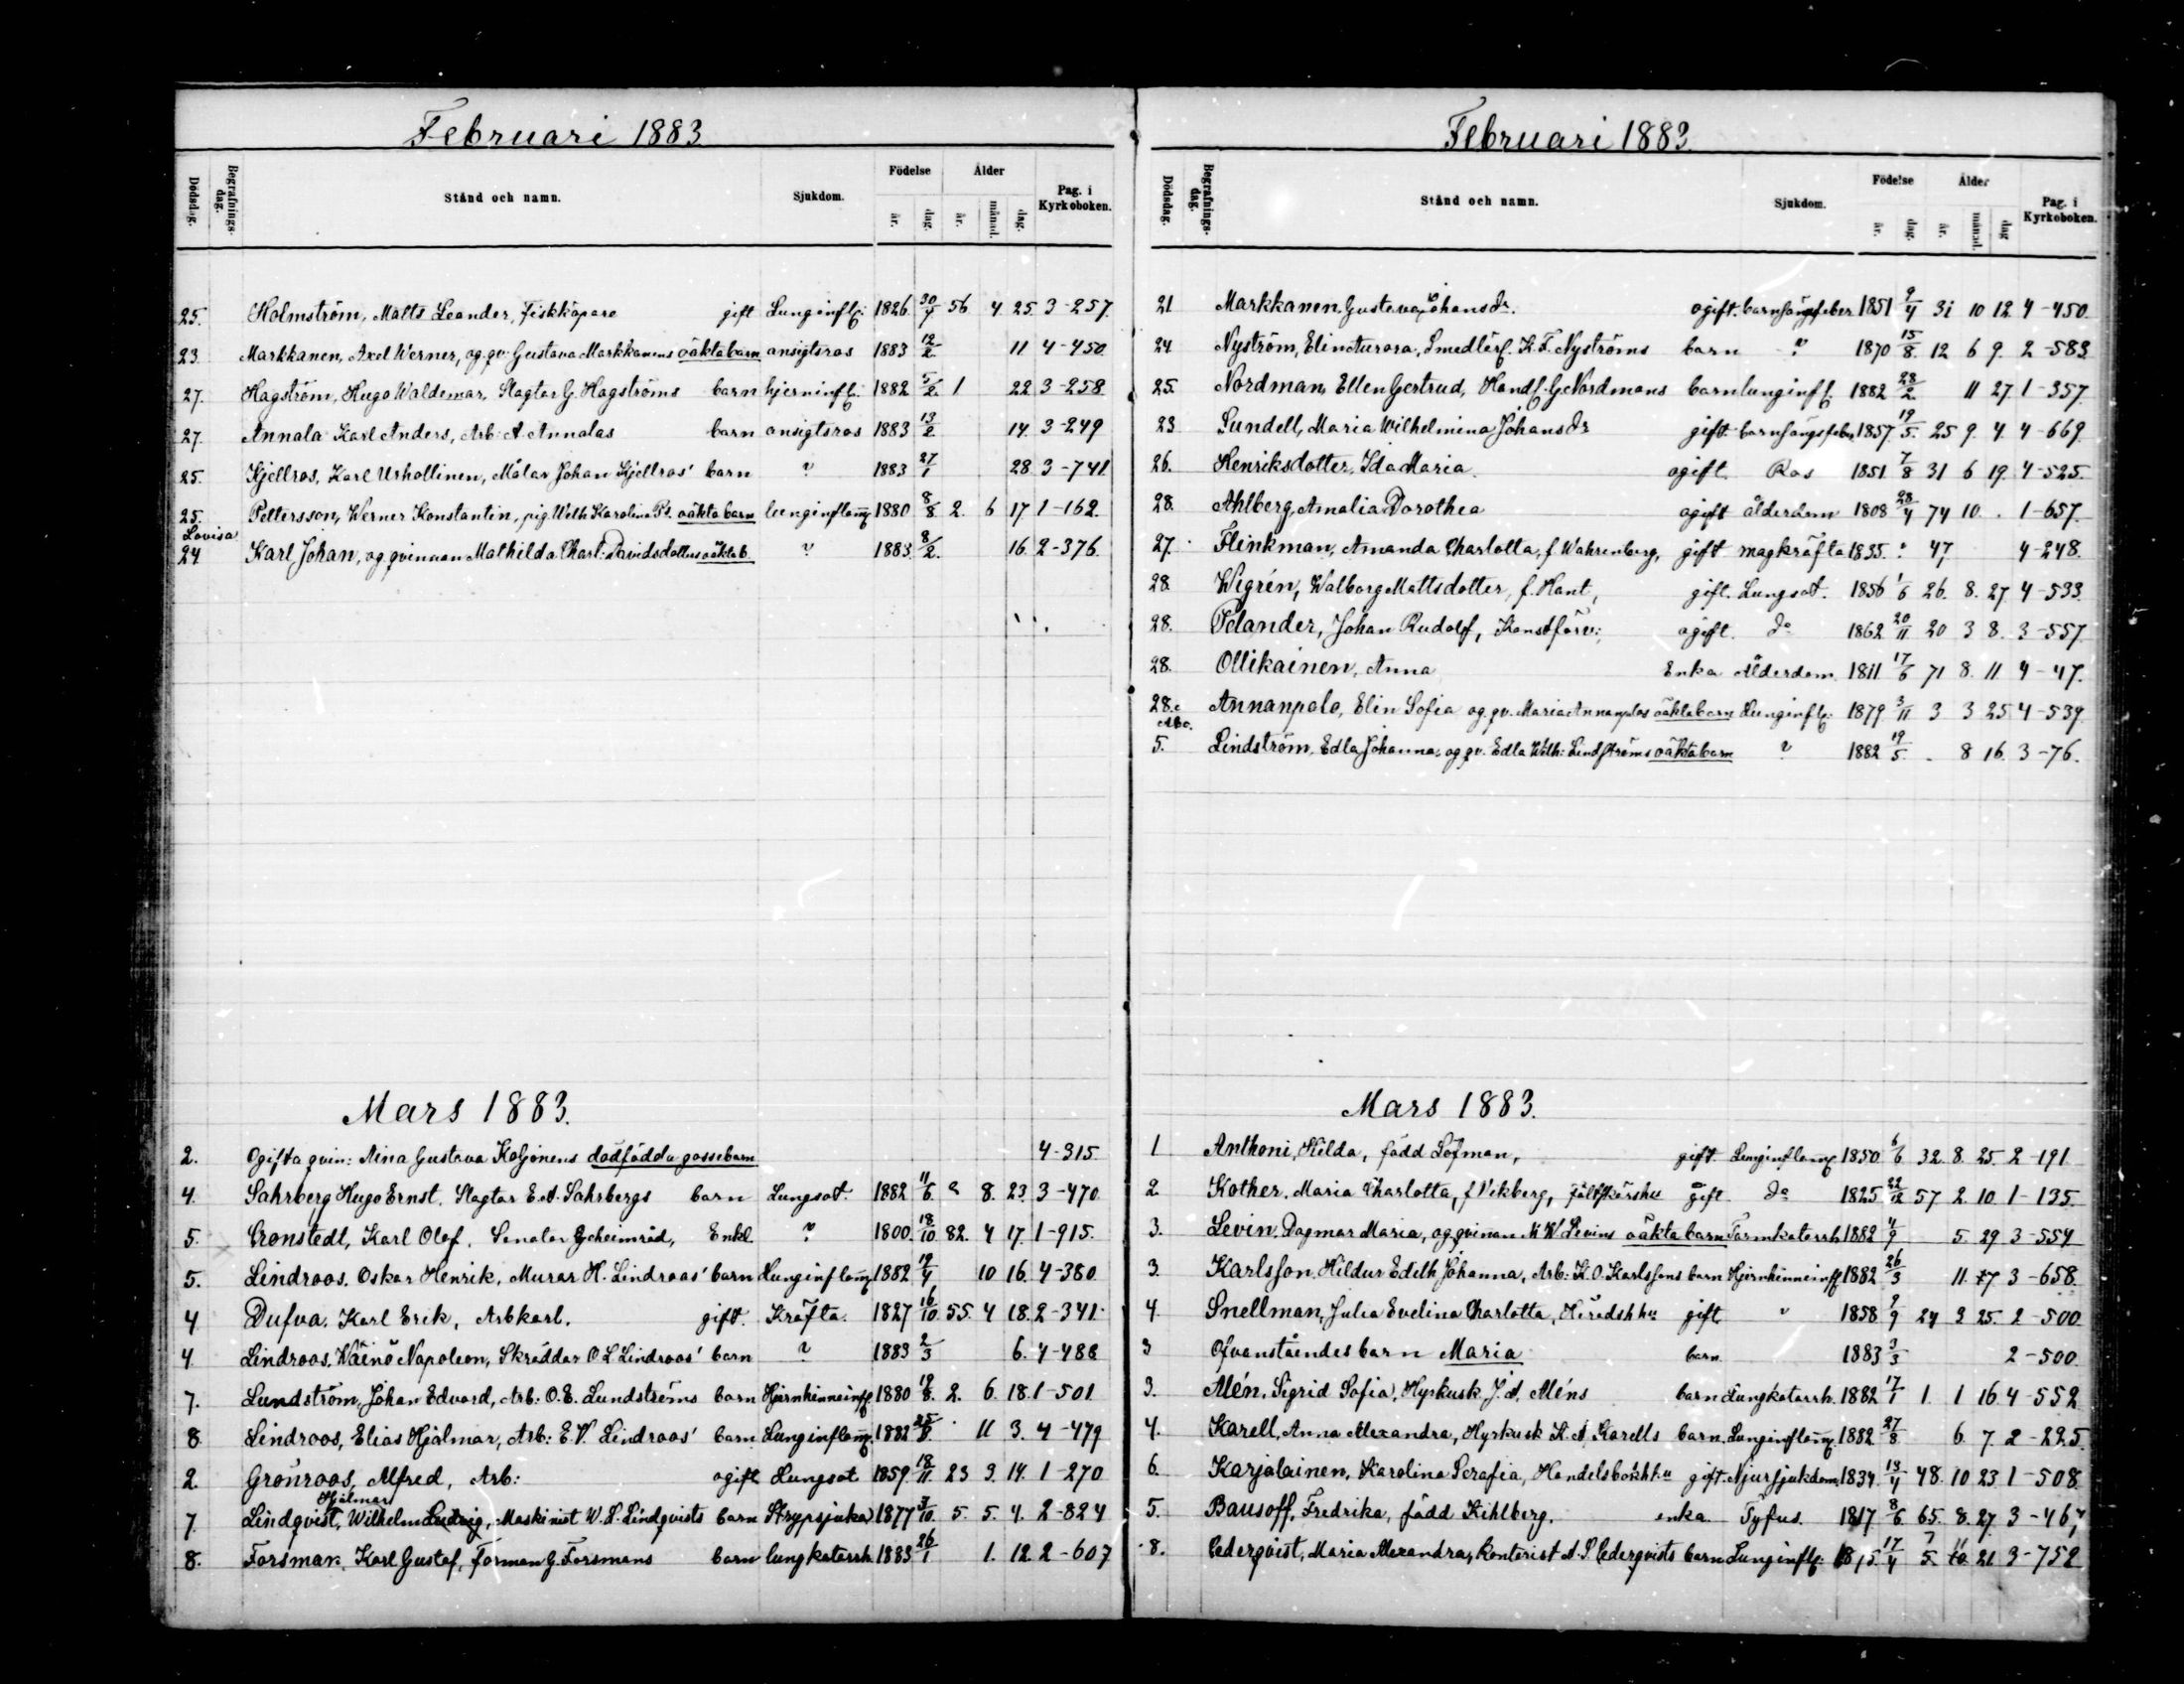 Februari 1883
Dödsdag. Begrafnings-dag. Stånd och namn. Sjukdom. Födelse år. dag. Ålder år. månad. dag. Pag. i Kyrkoboken.
25. Holmström, Matts Leander, Fiskköpare gift Lunginfl: 1826 30/4 56 4 25 3-257
23 Markkanen, Axel Werner, og. qv. Gustava Markkanens oäkta barn ansigtsros 1883 12/2 11 4-450
27. Hagström, Hugo Waldemar, Slagtar G. Hagströms barn hjerninfl: 1882 5/2 1 22 3-258
27. Annala Karl Anders, Arb: A. Annalas barn ansigtsros 1883 13/2 14 3-249
25. Kjellros, Karl Urhollinen, Målar Johan Kjellros' barn ? 1883 27/1 28 3-741
25. Pettersson, Werner Konstantin, pig. Wilh Karolina Pt. oäkta barn lunginflam̄ 1880 8/8 2. 6 17 1-162
Lovisa
24 Karl Johan, og. qvinnan Mathilda Charl: Davidsdotters oäkta b. ? 1883 8/2 16 2-376
Mars 1883.
2. Ogifta qvin: Nina Gustava Koljonens dödfödda gossebarn 4-315
4. Sahrberg Hugo Ernst. Slagtar E. A. Sahrbergs barn Lungsot 1882 11/6 8. 23 3-470
5. Cronstedt, Karl Olof. Senator Geheimråd, Enkl. ? 1800 18/10 82. 4 17 1-915
5. Lindroos, Oskar Henrik, Murar H. Lindroos' barn Lunginflam̄ 1882 19/4 10 16 4-380
4 Dufva, Karl Erik, Arbkarl. gift. Kräfta 1827 16/10 55. 4 18. 2-341
4 Lindroos, Wäinö Napoleon, Skräddar O L Lindroos' barn ? 1883 2/3 6. 4-488
7. Lundström, Johan Edvard, Arb: O. E. Lundströms barn Hjernhinneinfl 1880 19/8 2. 6. 18. 1-501
8 Lindroos, Elias Hjalmar, Arb: E. V. Lindroos' barn Lunginflam̄ 1882 11 3. 4-479
2. Grönroos, Alfred, Arb: ogift Lungsot 1859 18/11 23 3. 14. 1-270
Hjalmar
7. Lindqvist, Wilhelm Ludvig, Maskinist W. L. Lindqvists barn Strypsjuka 1877 3/10 5. 5. 4. 2-824
8. Forsman, Karl Gustaf, Forman G. Forsmans barn lungkatarrh 1883 26/1 1. 12 2-607
Februari 1883.
Dödsdag. Begrafnings-dag. Stånd och namn. Sjukdom. Födelse år. dag. Ålder år. månad. dag Pag. i Kyrkoboken.
21 Markkanen, Gustava Johansdr. ogift. barnsängsfeber 1851 9/4 31 10 12 4-450
24 Nyström, Elin Aurora, Smedlärf. K. F. Nyströms barn ? 1870 15/8 12 6 9. 2-583
25. Nordman, Ellen Gertrud, Handl. G. Nordmans barn lunginfl 1882 28/2 11 27 1-357
23 Sundell, Maria Wilhelmina Johansdr gift. barnsängsfeber 1857 19/5 25 9. 4. 4-669
26. Henriksdotter, Ida Maria. ogift. Ros 1851 7/8 31 6 19. 4-525
28. Ahlberg, Amalia Dorothea ogift ålderdom 1808 28/4 74 10 . 1-657
27. Flinkman, Amanda Charlotta, f. Wahrenberg, gift magkräfta 1835 ? 47 4-248
28 Wigrén, Walborg Mattsdotter, f. Hant, gift. Lungsot. 1856 1/6 26. 8. 27 4-533
28. Pelander, Johan Rudolf, Konstförv: ogift. do 1862 20/11 20 3 8. 3-557
28. Ollikainen, Anna Enka Ålderdom 1811 17/6 71 8. 11 4-47
28. Annanpolo, Elin Sofia og. qv. Maria Annanpolos oäkta barn Lunginfl: 1879 3/11 3 3 25 4-539
5. Lindström, Edla Johanna, og qv. Edla Wilh: Lindströms oäkta barn ? 1882 19/5 . 8 16 3-76.
Mars 1883.
1 Anthoni, Hilda, född Löfman, gift. Lunginflam̄ 1850 6/6 32. 8. 25. 2-191
2. Kother, Maria Charlotta, f. Vikberg, fältskärshu gift do 1825 22/12 57 2. 10. 1-135.
3. Levin, Dagmar Maria, og qvinnan M. W. Levins oäkta barn Tarmkatarrh 1882 4/9 5. 29 3-554
3 Karlsson, Hildur Edith Johanna, Arb: K. O. Karlssons barn Hjernhinneinfl 1882 26/3 11. 7 3-658
4. Snellman, Julia Evelina Charlotta, Häradshhu gift " 1858 24 3 25. 2-500
3 Ofvanståendes barn Maria barn 1883 3/3 2-500
3. Alén, Sigrid Sofia, Hyrkusk J. A. Aléns barn Lungkatarrh 1882 17/1 1. 1 16 4-552
4. Karell, Anna Alexandra, Hyrkusk K. A. Karells barn Lunginflam̄ 1882 27/8 6. 7. 2-225
6. Karjalainen, Karolina Serafia, Handelsbokhh:u gift. Njursjukdom 1834 13/4 48. 10 23 1-508
5. Bausoff, Fredrika, född Kihlberg. enka Tyfus 1817 8/6 65. 8. 27 3-467
8. Cederqvist, Maria Alexandra, Kontorist A. S. Cederqvists barn Lunginfl: 1875 17/4 7 11 21 3-752